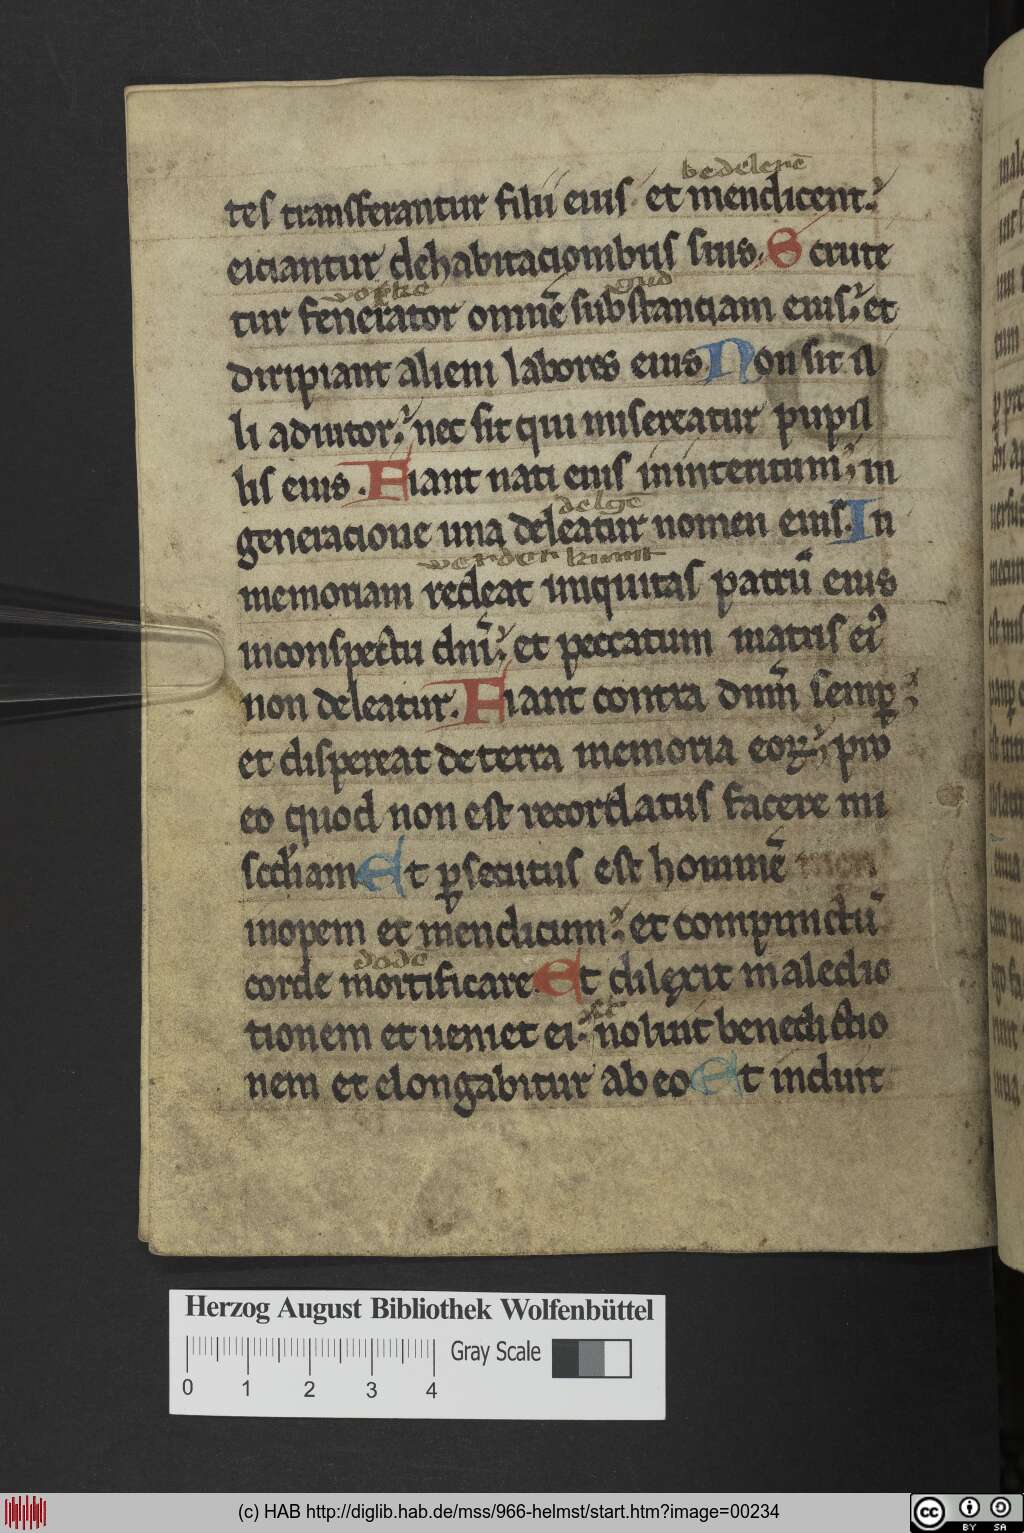 bedelerē
tes transferantur filii eius et mendicent.
eiciantur dehabitacionibus suis. Scrute
tur fenerator omnē substanciam eius. et
diripiant alieni labores eius Non sit il
li adiutor. nec sit qui misereatur pupil
lis eius. Fiant nati eius inInteritum; in
delgē
generacione una deleatur nomen eius. In
memoriam redeat iniquitas patrū eius
inconspectu dn̄i. et peccatum matris ei9
non deleatur. Fiant contra dn̄m semp
et dispereat deterra memoria eoꝝ; pro
eo quod non est recordatus facere mi
sc̄diam Et ꝑsecutus est hominē
inopem et mendicum. et compunctū
dodē
corde mortificare. Et dilexit maledic
tionem et ueniet ei. noluit benedictio
nem et elongabitur ab eo Et induit
Herzog August Bibliothek Wolfenbüttel
Gray Scale
0 1 2 3 4
(c) HAB http://diglib.hab.de/mss/966-helmst/start.htm?image=00234
cc BY SA